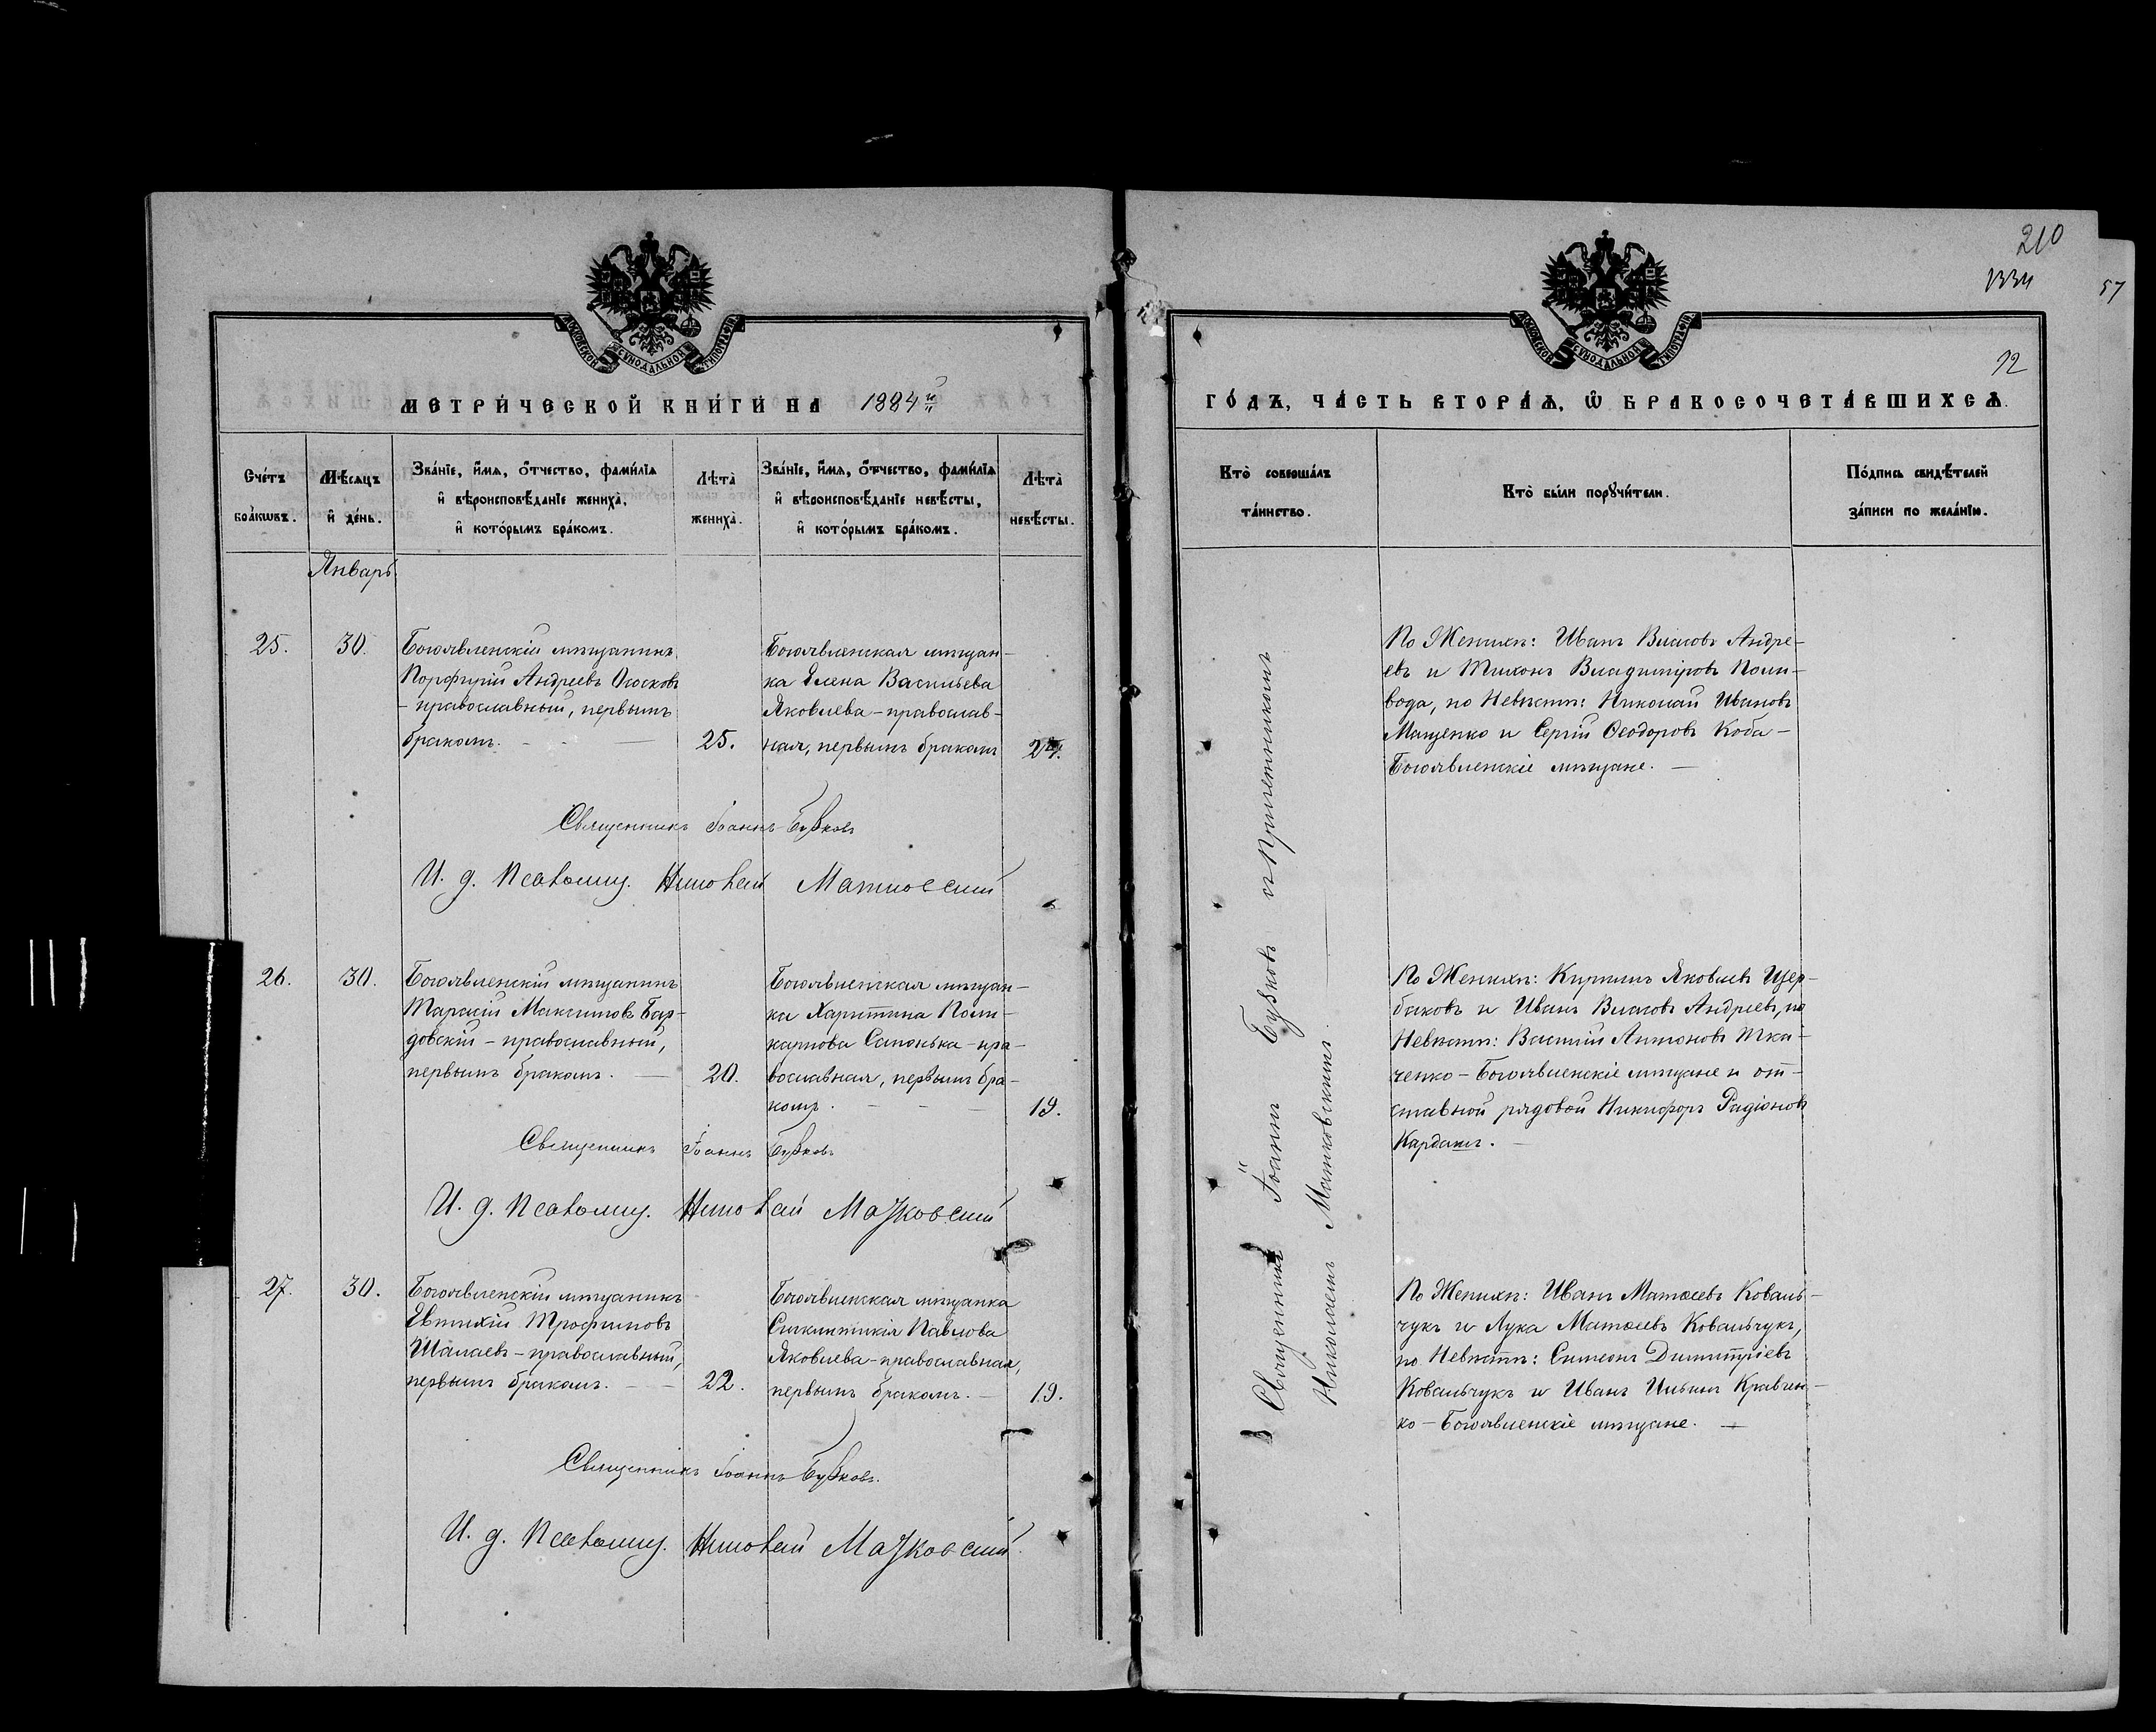 МОСКОВСКОЙ СУНОДАЛЬНОЙ ТИПОГРАФІИ
МЕТРИ́ЧЕСКОЙ КНИ́ГИ НА 1884й
Сче́тъ бра́кѡвъ.
Мѣ́сѧцъ и҆ де́нь.
Зва́нїе, и҆́мѧ, ѻ҆́тчество, фами́лїѧ
и҆ вѣроисповѣ́данїе жениха̀,
и҆ кото́рымъ бра́комъ.
Лѣ́та̀ жениха̀.
Зва́нїе, и҆́мѧ, ѻ҆́тчество, фами́лїѧ
и҆ вѣроисповѣ́данїе невѣ́сты,
и҆ кото́рымъ бра́комъ.
Лѣ́та̀ невѣ́сты.
Январь
25.
30.
Богоявленскій мѣщанинъ
Порфирій Андреевъ Ососковъ
- православный, первымъ
бракомъ. -
25.
Богоявленская мѣщан-
ка Елена Васильева
Яковлева - православ-
ная, первымъ бракомъ
Священникъ Іоаннъ Бузковъ
И. д. Псаломщ. Николай Матковскій
26.
30.
Богоявленскій мѣщанинъ
Тарасій Максимовъ Бар-
довскій - православный,
первымъ бракомъ. -
20.
Богоявленская мѣщан-
ка Харитина Поли-
карпова Сапонька - пра-
вославная, первымъ бра-
комъ. - - -
19.
Священникъ Іоаннъ Бузковъ
И. д. Псаломщ. Николай Матковскій
27.
30.
Богоявленскій мѣщанинъ
Евтихій Трофимовъ
Шалаевъ - православный,
первымъ бракомъ. - -
22.
Богоявленская мѣщанка
Синклитикія Павлова
Яковлева - православная,
первымъ бракомъ. -
19.
Священникъ Іоаннъ Бузковъ.
И. д. Псаломщ. Николай Матковскій
210
1334
57
12
МОСКОВСКОЙ СУНОДАЛЬНОЙ ТИПОГРАФІИ
ГО́ДЪ, ЧА́СТЬ ВТОРА́Ѧ, Ѡ҆ БРАКОСОЧЕТА́ВШИХСѦ.
Кто̀ соверша́лъ
та́инство.
Кто̀ бы́ли порꙋчи́тели.
По́дпись свидѣ́телей
за́писи по жела́нїю.
Священникъ Іоаннъ Бузковъ съ Причетникомъ
Николаемъ Матковскимъ.
По Женихѣ: Иванъ Власовъ Андре-
евъ и Тихонъ Владиміровъ Поли-
вода, по Невѣстѣ: Николай Ивановъ
Мащенко и Сергій Ѳеодоровъ Коба -
Богоявленскіе мѣщане. -
По Женихѣ: Кириллъ Яковлевъ Щер-
баковъ и Иванъ Власовъ Андреевъ, по
Невѣстѣ: Василій Антоновъ Тка-
ченко - Богоявленскіе мѣщане и от-
ставной рядовой Никифоръ Радіоновъ
Карданъ. -
По Женихѣ: Иванъ Матѳеевъ Коваль-
чукъ и Лука Матѳеевъ Ковальчукъ,
по Невѣстѣ: Симеонъ Димитріевъ
Ковальчукъ и Иванъ Ильинъ Кравчен-
ко - Богоявленскіе мѣщане. -